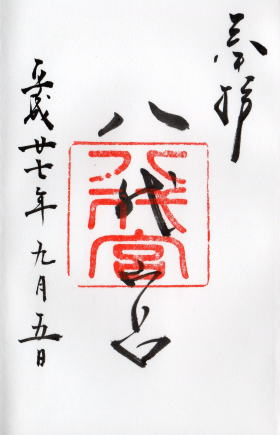 奉拝
八代宮
八代宮
平成廿七年九月五日